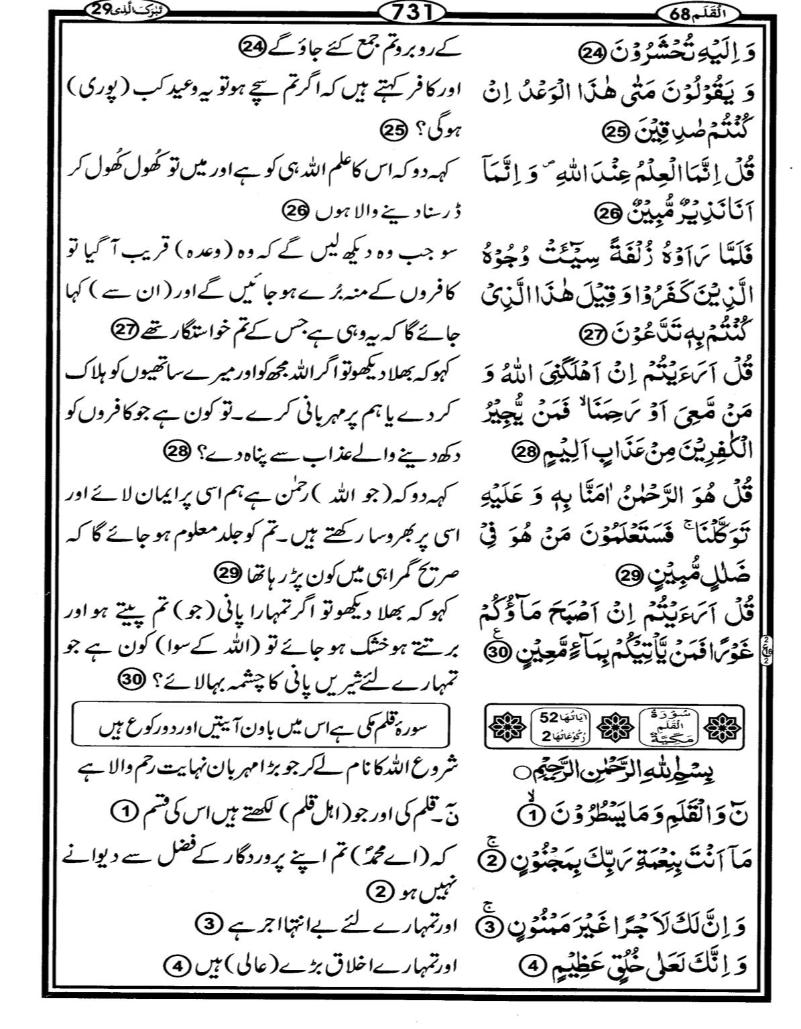 تبٰرک الذی 29
731
القلم 68
وَ اِلَيْهِ تُحْشَرُوْنَ 24
وَ يَقُوْلُوْنَ مَتٰى هٰذَا الْوَعْدُ اِنْ
كُنْتُمْ صٰدِقِيْنَ 25
قُلْ اِنَّمَا الْعِلْمُ عِنْدَ اللّٰهِ ۪ وَ اِنَّمَاۤ
اَنَا نَذِيْرٌ مُّبِيْنٌ 26
فَلَمَّا رَاَوْهُ زُلْفَةً سِيْٓـَٔتْ وُجُوْهُ
الَّذِيْنَ كَفَرُوْا وَ قِيْلَ هٰذَا الَّذِيْ
كُنْتُمْ بِهٖ تَدَّعُوْنَ 27
قُلْ اَرَءَيْتُمْ اِنْ اَهْلَكَنِيَ اللّٰهُ وَ
مَنْ مَّعِيَ اَوْ رَحِمَنَا ۙ فَمَنْ يُّجِيْرُ
الْكٰفِرِيْنَ مِنْ عَذَابٍ اَلِيْمٍ 28
قُلْ هُوَ الرَّحْمٰنُ اٰمَنَّا بِهٖ وَ عَلَيْهِ
تَوَكَّلْنَا ۚ فَسَتَعْلَمُوْنَ مَنْ هُوَ فِيْ
ضَلٰلٍ مُّبِيْنٍ 29
قُلْ اَرَءَيْتُمْ اِنْ اَصْبَحَ مَآؤُكُمْ
غَوْرًا فَمَنْ يَّاْتِيْكُمْ بِمَآءٍ مَّعِيْنٍ 30
سُوْرَةُ الْقَلَمِ مَكِّيَّةٌ
اٰيَاتُهَا 52
رُكُوْعَاتُهَا 2
بِسْمِ اللّٰهِ الرَّحْمٰنِ الرَّحِيْمِ
نٓ وَ الْقَلَمِ وَ مَا يَسْطُرُوْنَ ۙ 1
مَاۤ اَنْتَ بِنِعْمَةِ رَبِّكَ بِمَجْنُوْنٍ ۚ 2
وَ اِنَّ لَكَ لَاَجْرًا غَيْرَ مَمْنُوْنٍ ۚ 3
وَ اِنَّكَ لَعَلٰى خُلُقٍ عَظِيْمٍ 4
کے روبرو تم جمع کئے جاؤ گے 24
اور کافر کہتے ہیں کہ اگر تم سچے ہو تو یہ وعید کب (پوری)
ہوگی؟ 25
کہہ دو کہ اس کا علم اللہ ہی کو ہے اور میں تو کھول کھول کر
ڈر سنا دینے والا ہوں 26
سو جب وہ دیکھ لیں گے کہ وہ (وعدہ) قریب آگیا تو
کافروں کے منہ بُرے ہو جائیں گے اور (ان سے) کہا
جائے گا کہ یہ وہی ہے جس کے تم خواستگار تھے 27
کہو کہ بھلا دیکھو تو اگر اللہ مجھ کو اور میرے ساتھیوں کو ہلاک
کر دے یا ہم پر مہربانی کرے۔ تو کون ہے جو کافروں کو
دکھ دینے والے عذاب سے پناہ دے؟ 28
کہہ دو کہ (جو اللہ) رحمٰن ہے ہم اسی پر ایمان لائے اور
اسی پر بھروسا رکھتے ہیں۔ تم کو جلد معلوم ہو جائے گا کہ
صریح گمراہی میں کون پڑ رہا تھا 29
کہو کہ بھلا دیکھو تو اگر تمہارا پانی (جو) تم پیتے ہو اور
برتتے ہو خشک ہو جائے تو (اللہ کے سوا) کون ہے جو
تمہارے لئے شیریں پانی کا چشمہ بہا لائے؟ 30
سورۂ قلم مکی ہے اس میں باون آیتیں اور دو رکوع ہیں
شروع اللہ کا نام لے کر جو بڑا مہربان نہایت رحم والا ہے
نٓ۔ قلم کی اور جو (اہل قلم) لکھتے ہیں اس کی قسم 1
کہ (اے محمدؐ) تم اپنے پروردگار کے فضل سے دیوانے
نہیں ہو 2
اور تمہارے لئے بے انتہا اجر ہے 3
اور تمہارے اخلاق بڑے (عالی) ہیں 4